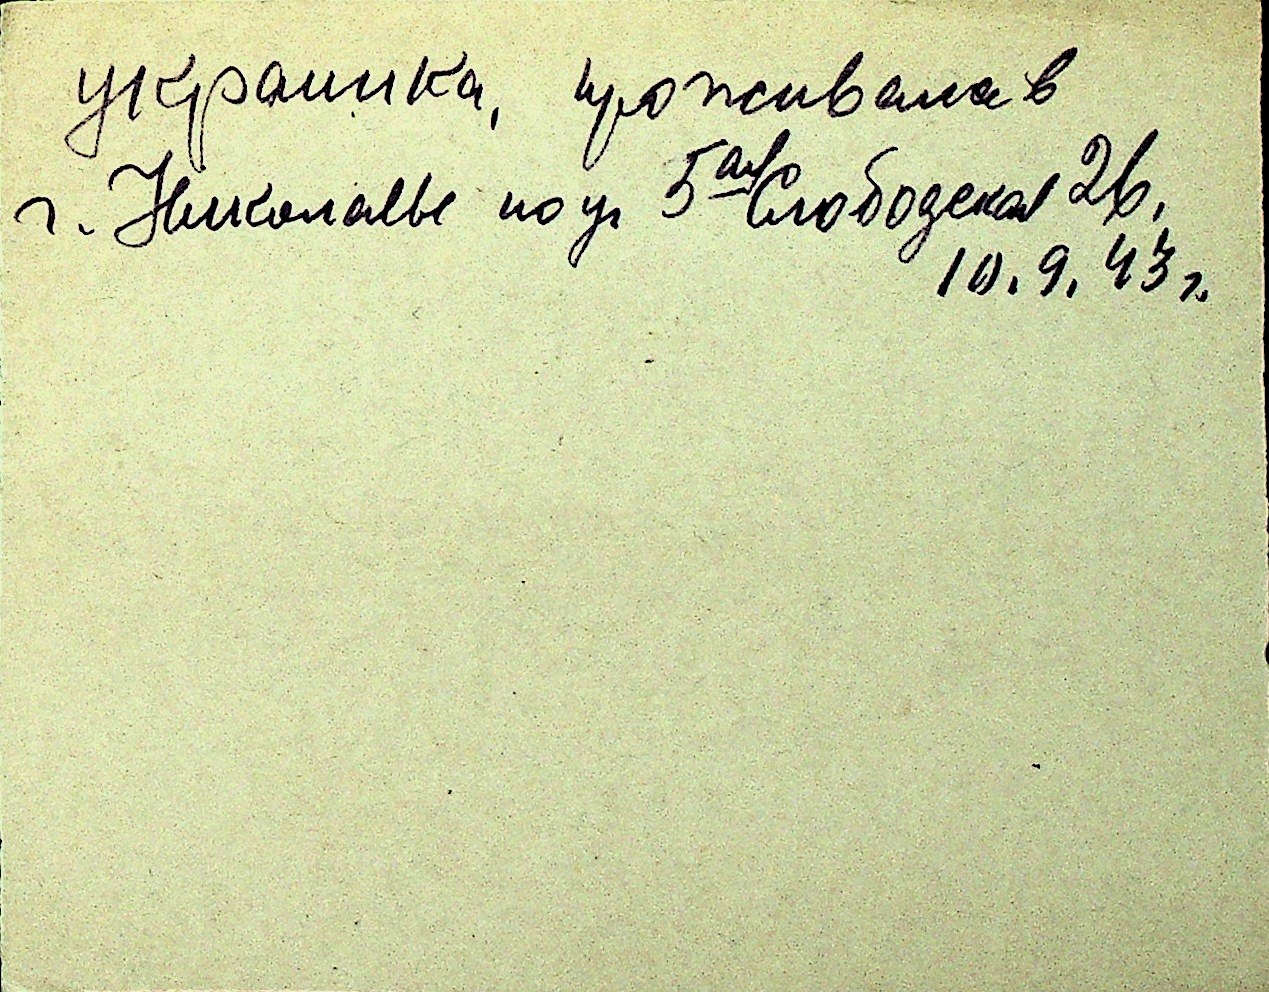 украинка, проживала в
г. Николаеве по ул 5ая Слободская 26,
10.9.43 г.